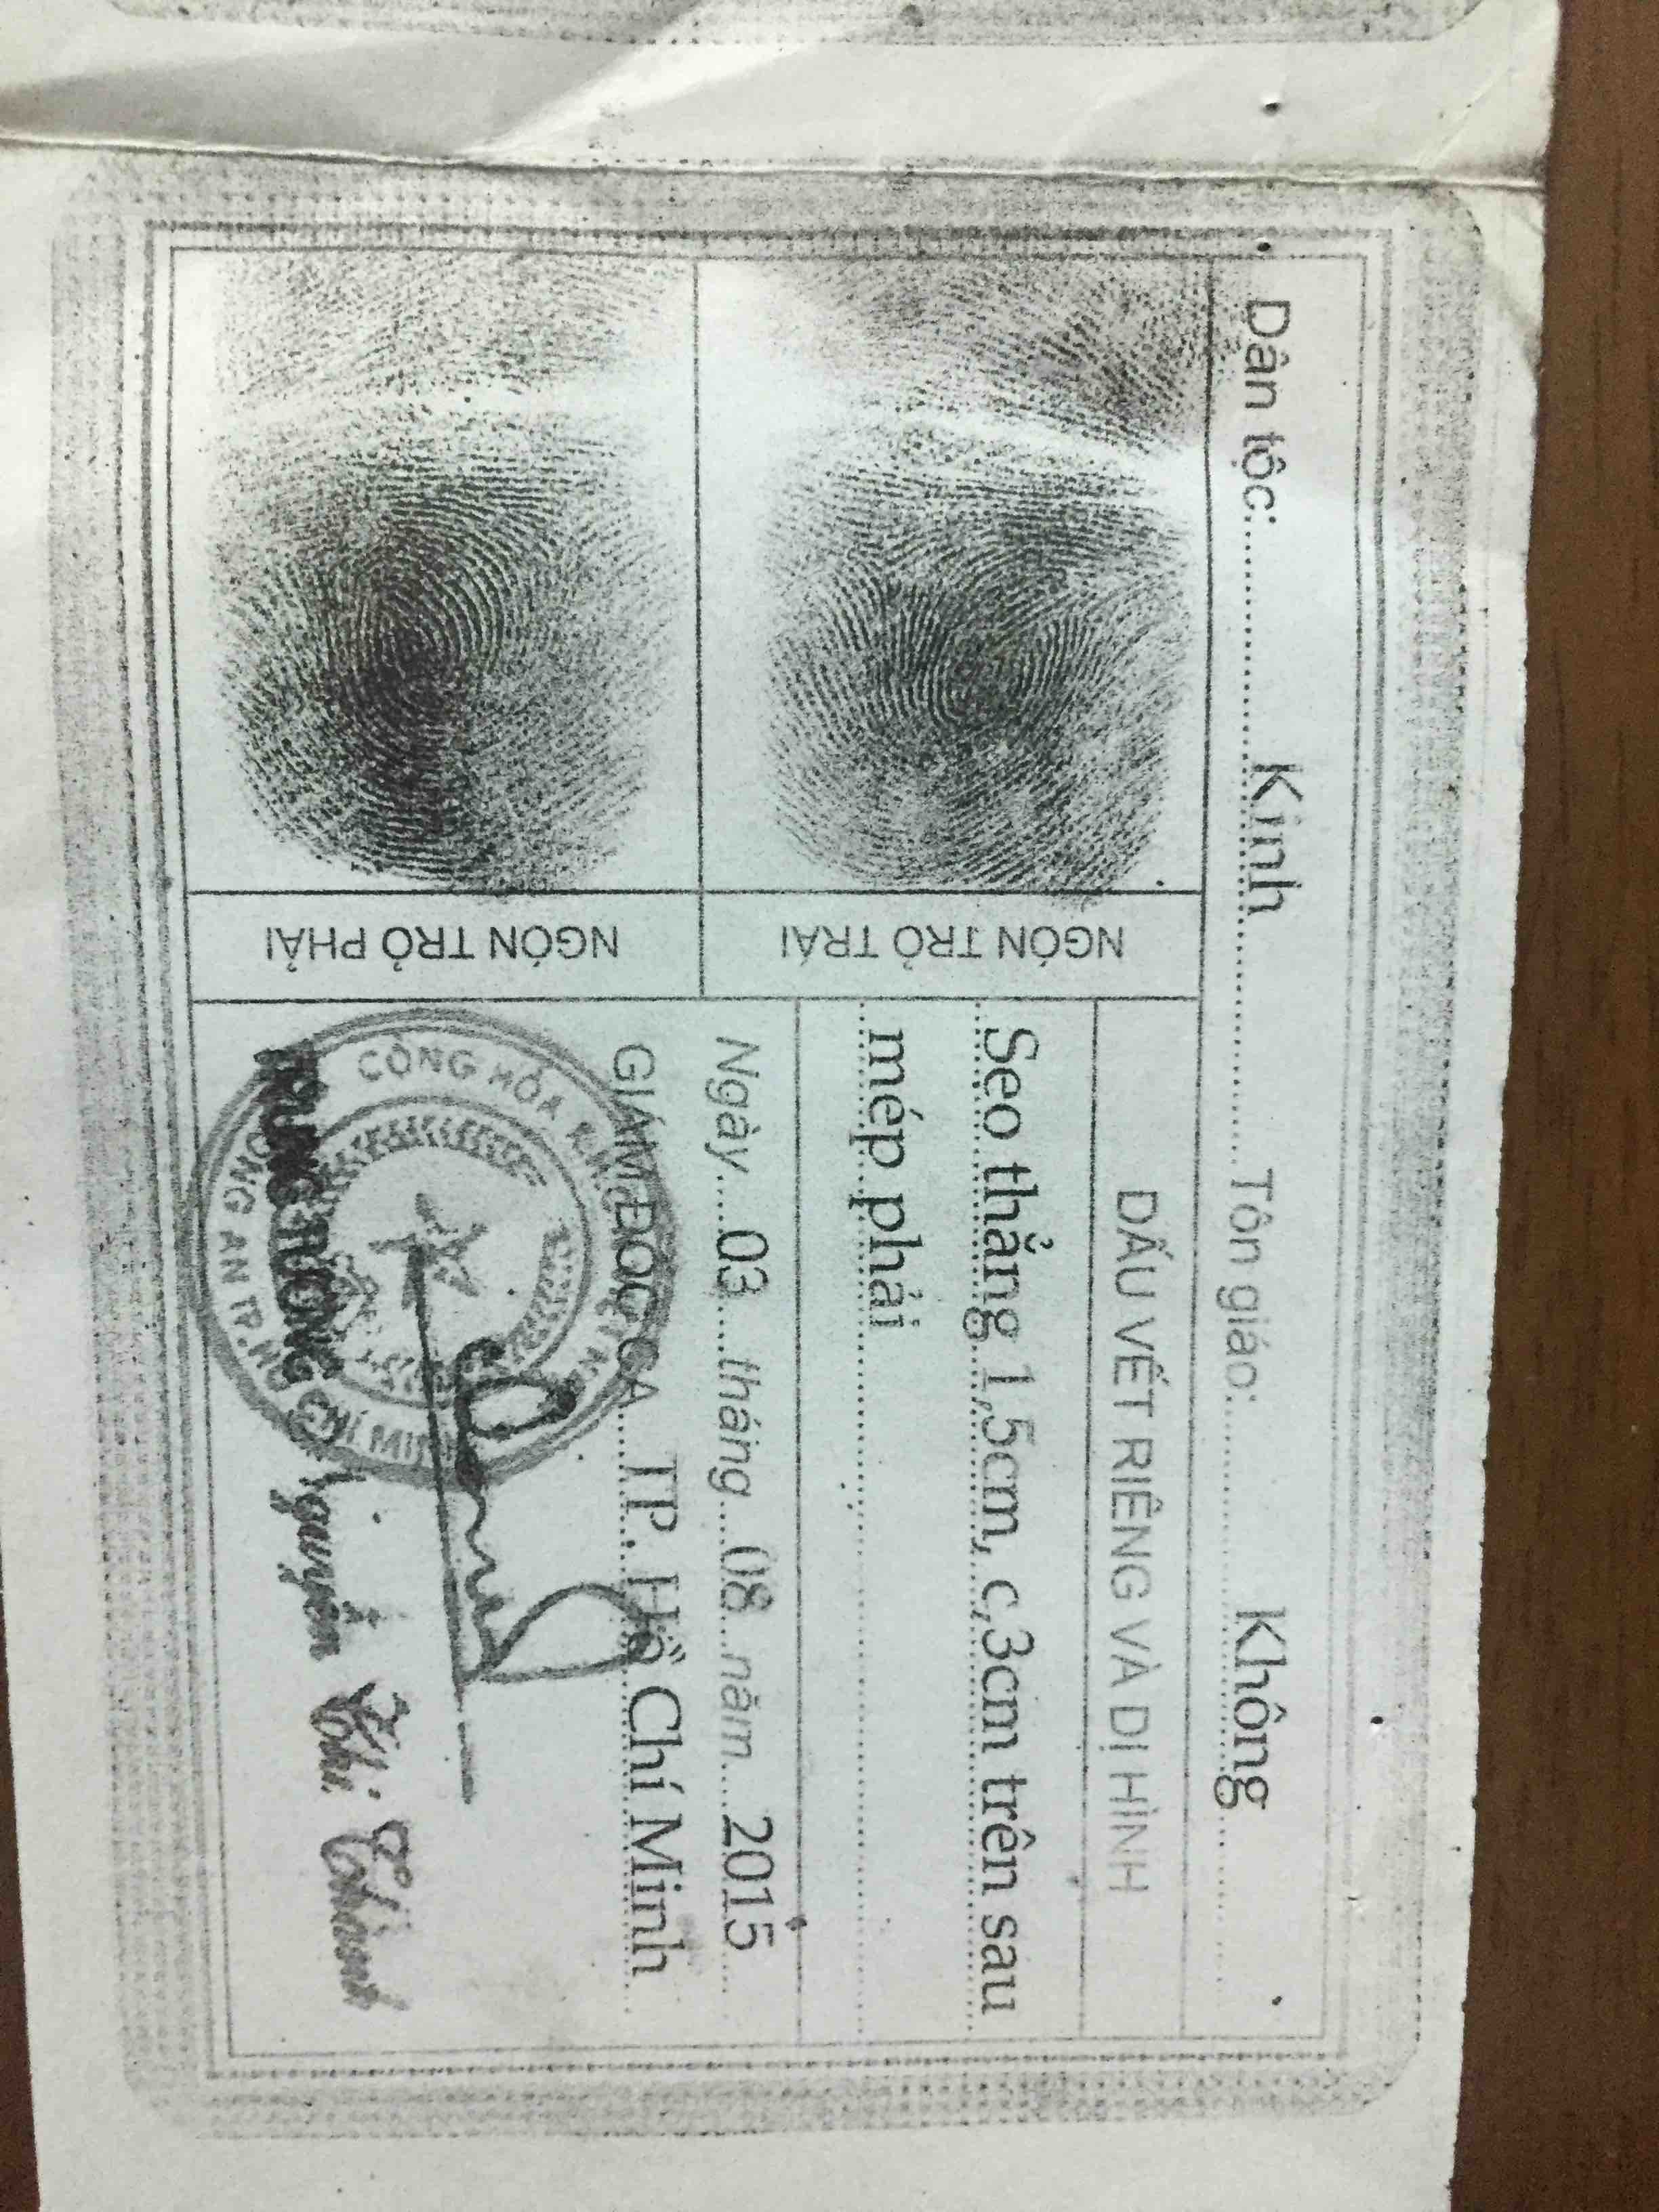 Dân tộc:..........Kinh..........Tôn giáo:..........Không..........
NGÓN TRỎ TRÁI
NGÓN TRỎ PHẢI
DẤU VẾT RIÊNG VÀ DỊ HÌNH
Sẹo thẳng 1,5cm, c,3cm trên sau
mép phải
Ngày....03....tháng....08...năm....2015
GIÁM ĐỐC CA....TP. Hồ Chí Minh
CỘNG HÒA
CÔNG AN TP. HỒ CHÍ MINH
Nguyễn